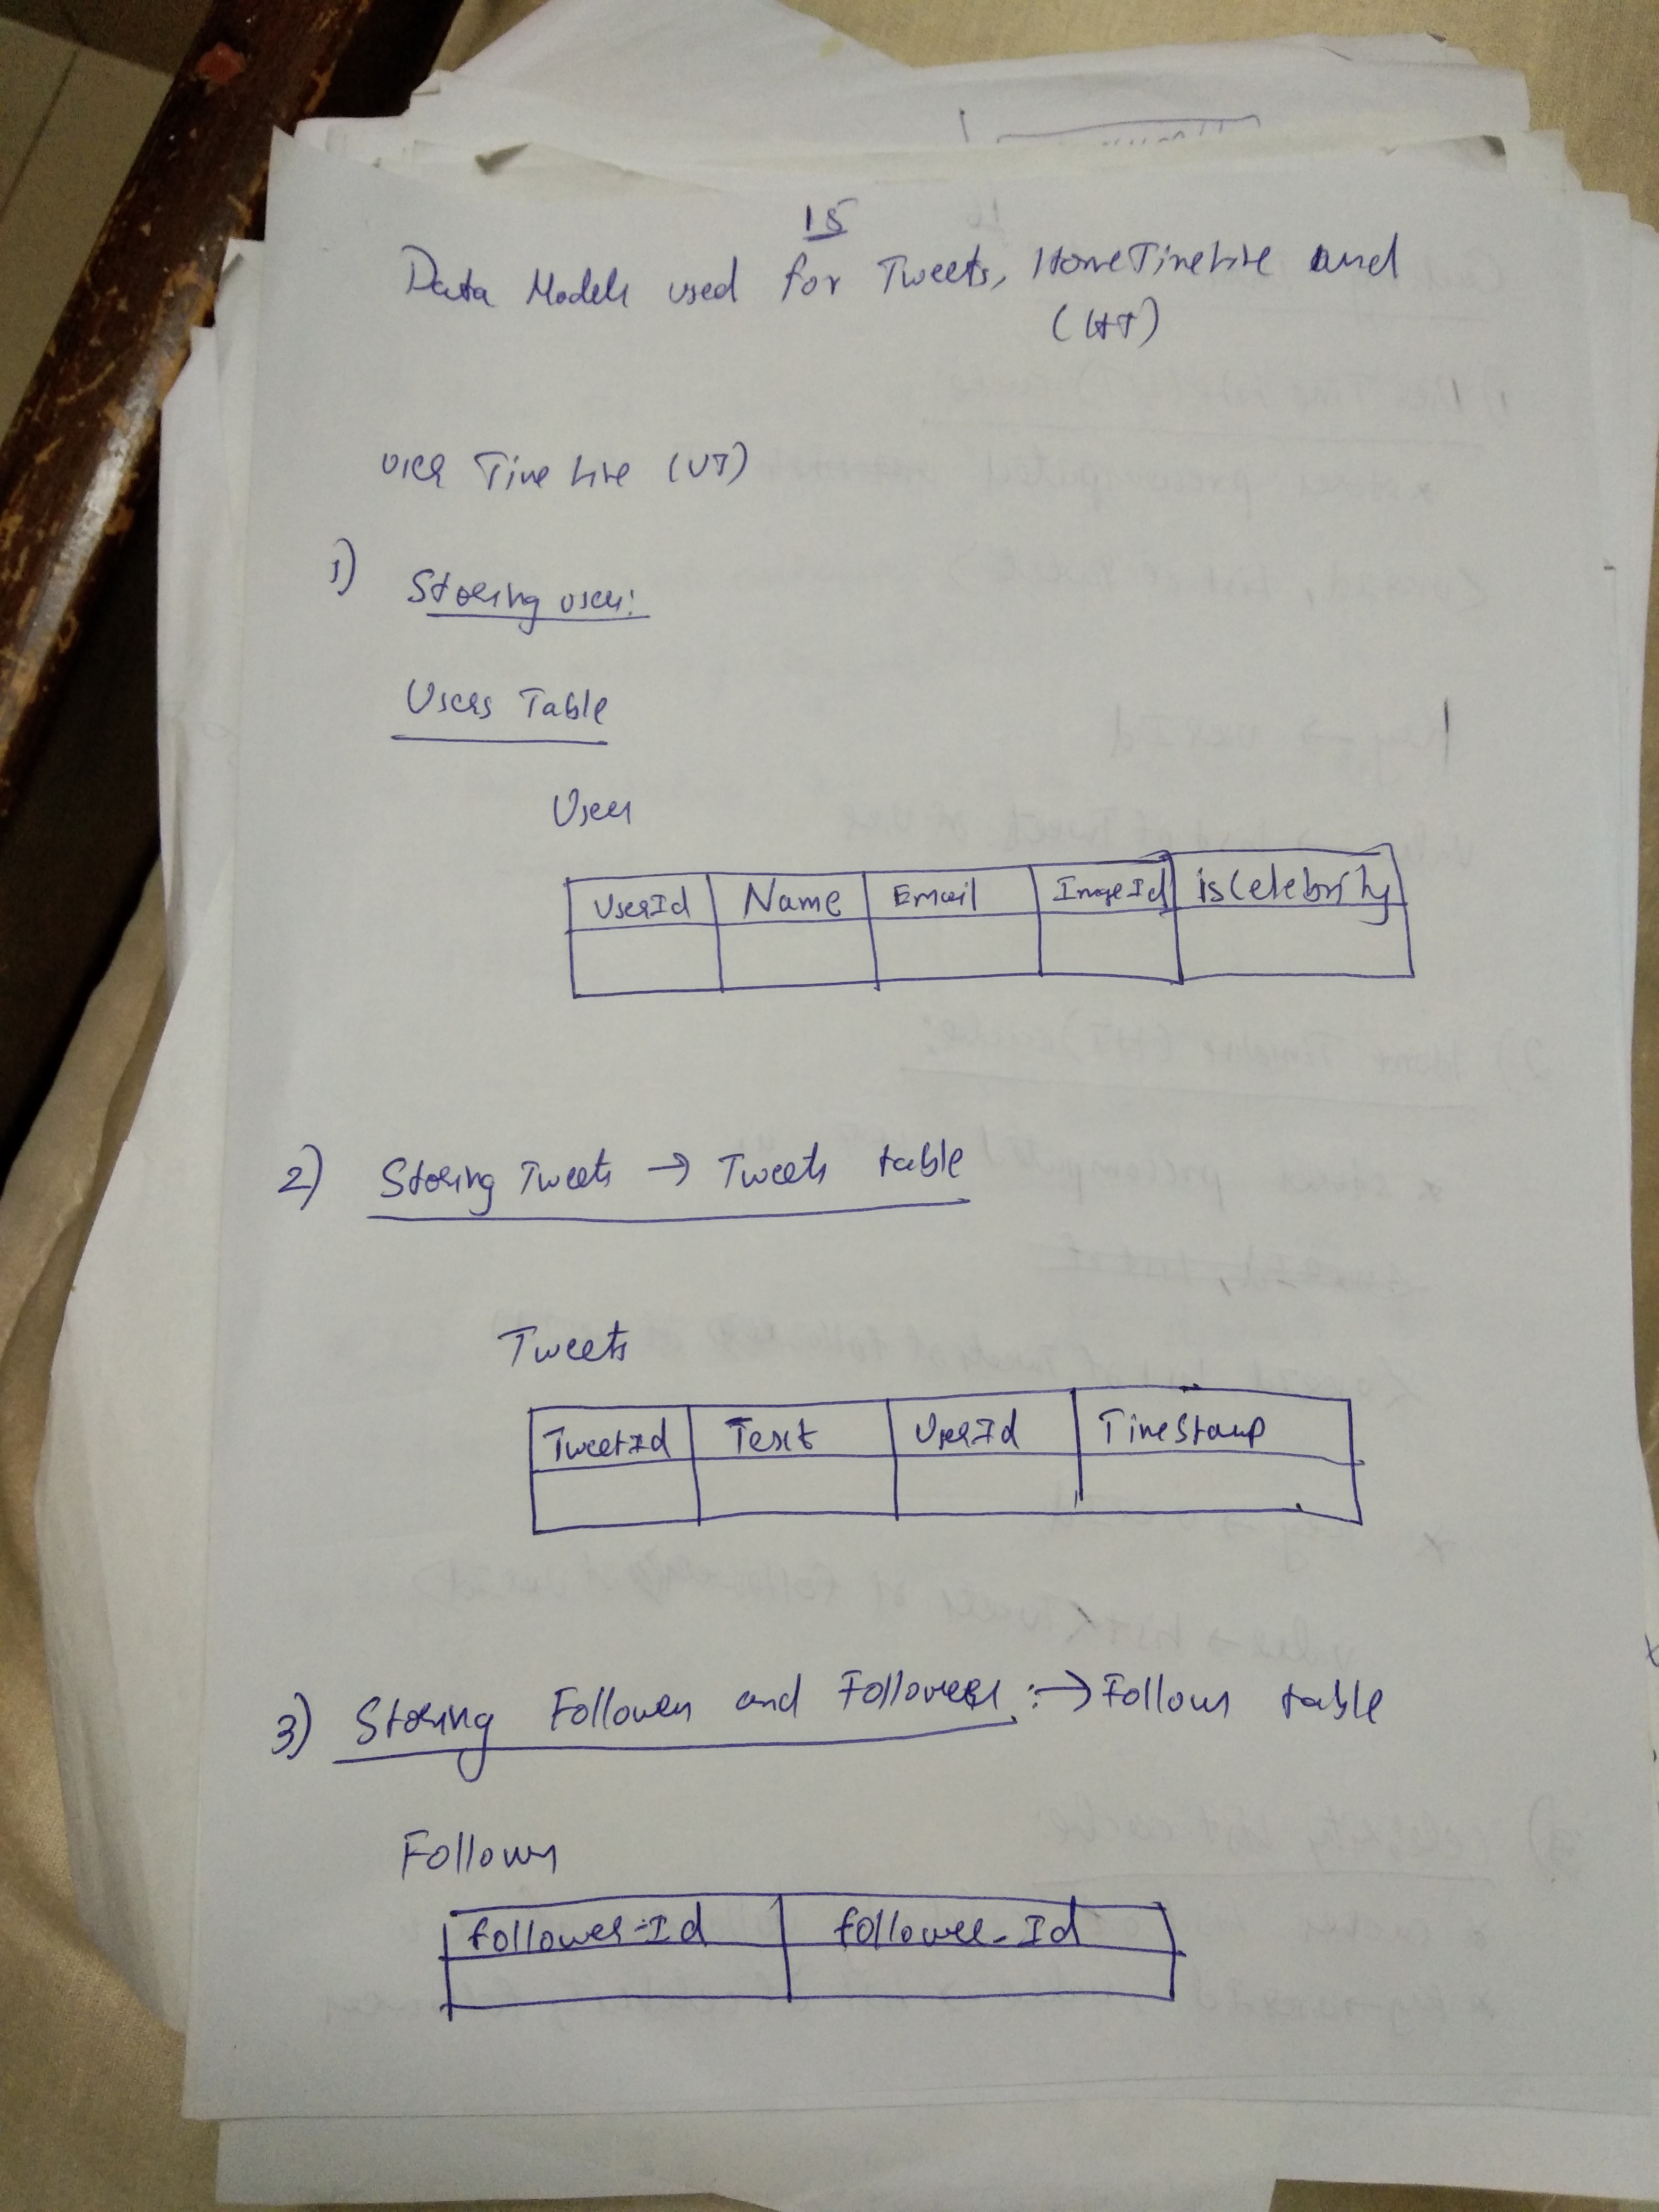 15
Data Models used for Tweets, HomeTimeline and
(HT)
User Time line (UT)
1) Storing user:
Users Table
Users
UserId Name Email ImageId isCelebrity
2) Storing Tweets → Tweets table
Tweets
TweetId Text UserId TimeStamp
3) Storing Followers and Followees :→ Follows table
Follows
follower-Id followee-Id